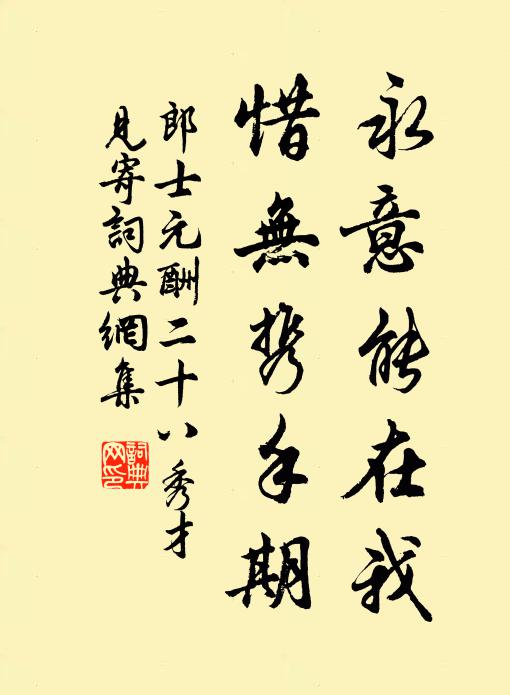 永意能在我
惜無携手期
郎士元酬二十八秀才
見寄詞典網集
詞典網印